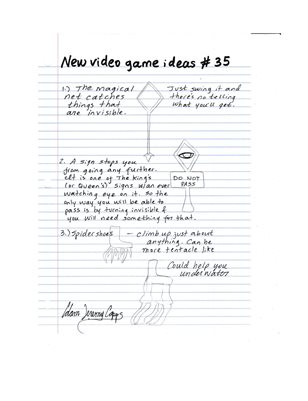 New video game ideas #35
1.) The magical
net catches
things that
are invisible.
Just swing it and
there's no telling
what you'll get.
2. A sign stops you
from going any further.
It is one of The King's
(or Queen's) signs w/an ever
watching eye on it. So the
only way you will be able to
pass is by turning invisible &
you will need something for that.
DO NOT
PASS
3.) Spider shoes - climb up just about
anything. Can be
more tentacle like
Could help you
underwater.
Adam Jeremy Capps